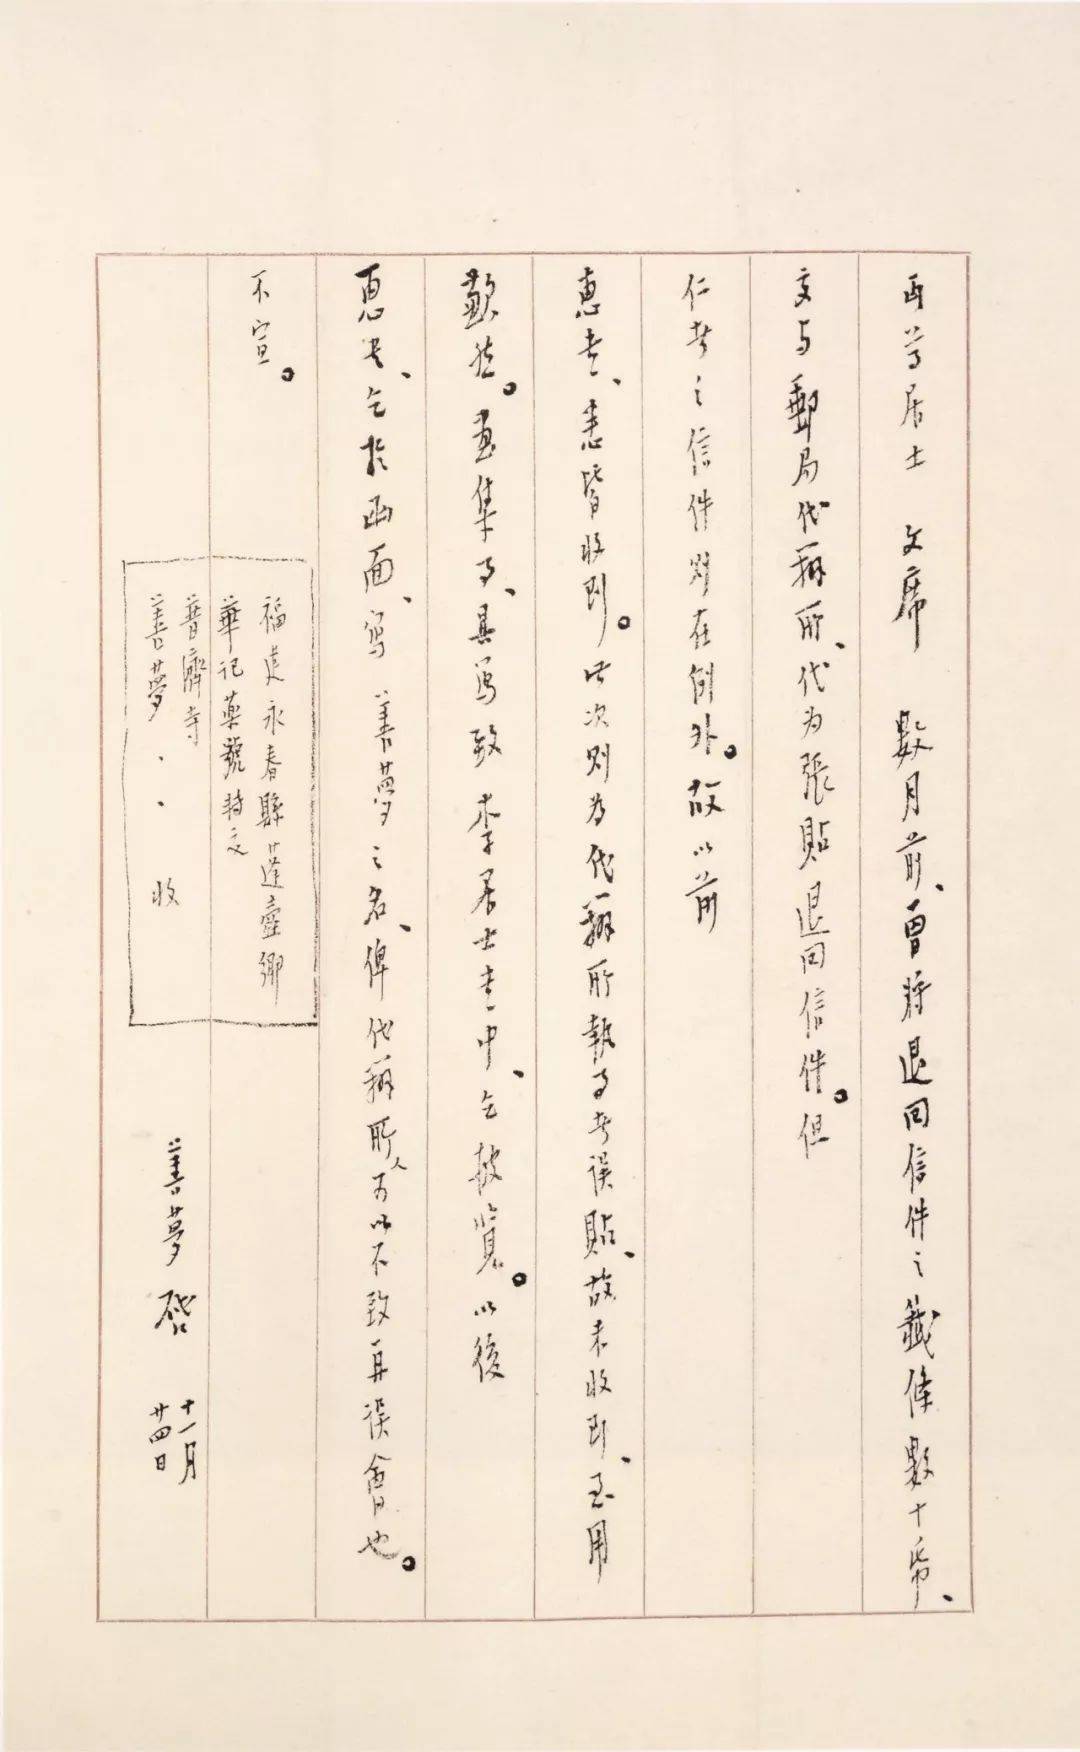 丏尊居士 文席 數月前、曾將退回信件之籤條數十帋、
交与郵局代辦所、代为張貼退回信件。但
仁者之信件則在例外。故以前
惠書、悉皆收到。此次則为代辦所執事者误貼、故未收到、至用
歉然。画集事、具寫致 李居士書中、乞披覽。以後
惠書、乞於函面、寫 善夢之名、俾代辦所人可以不致再误會也。
不宣。
福建永春縣蓬壺鄉
華記藥號轉交
普濟寺
善夢、、收
善夢啓 十一月
廿四日